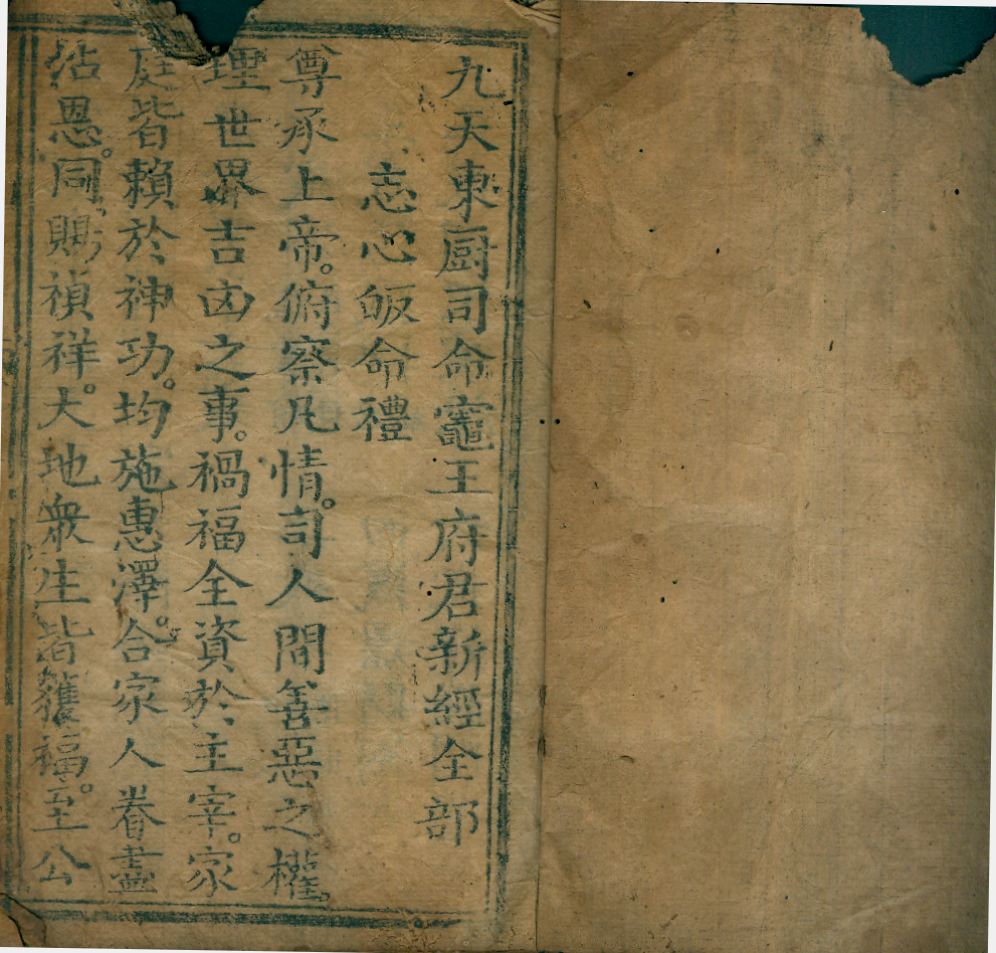 九天東厨司命竈王府君新經全部
志心皈命禮
尊承上帝。俯察凡情。司人間善惡之權。
理世界吉凶之事。禍福全資於主宰。家
庭皆賴於神功。均施惠澤。合家人眷盡
沾恩。同賜禎祥。大地衆生皆獲福。至公